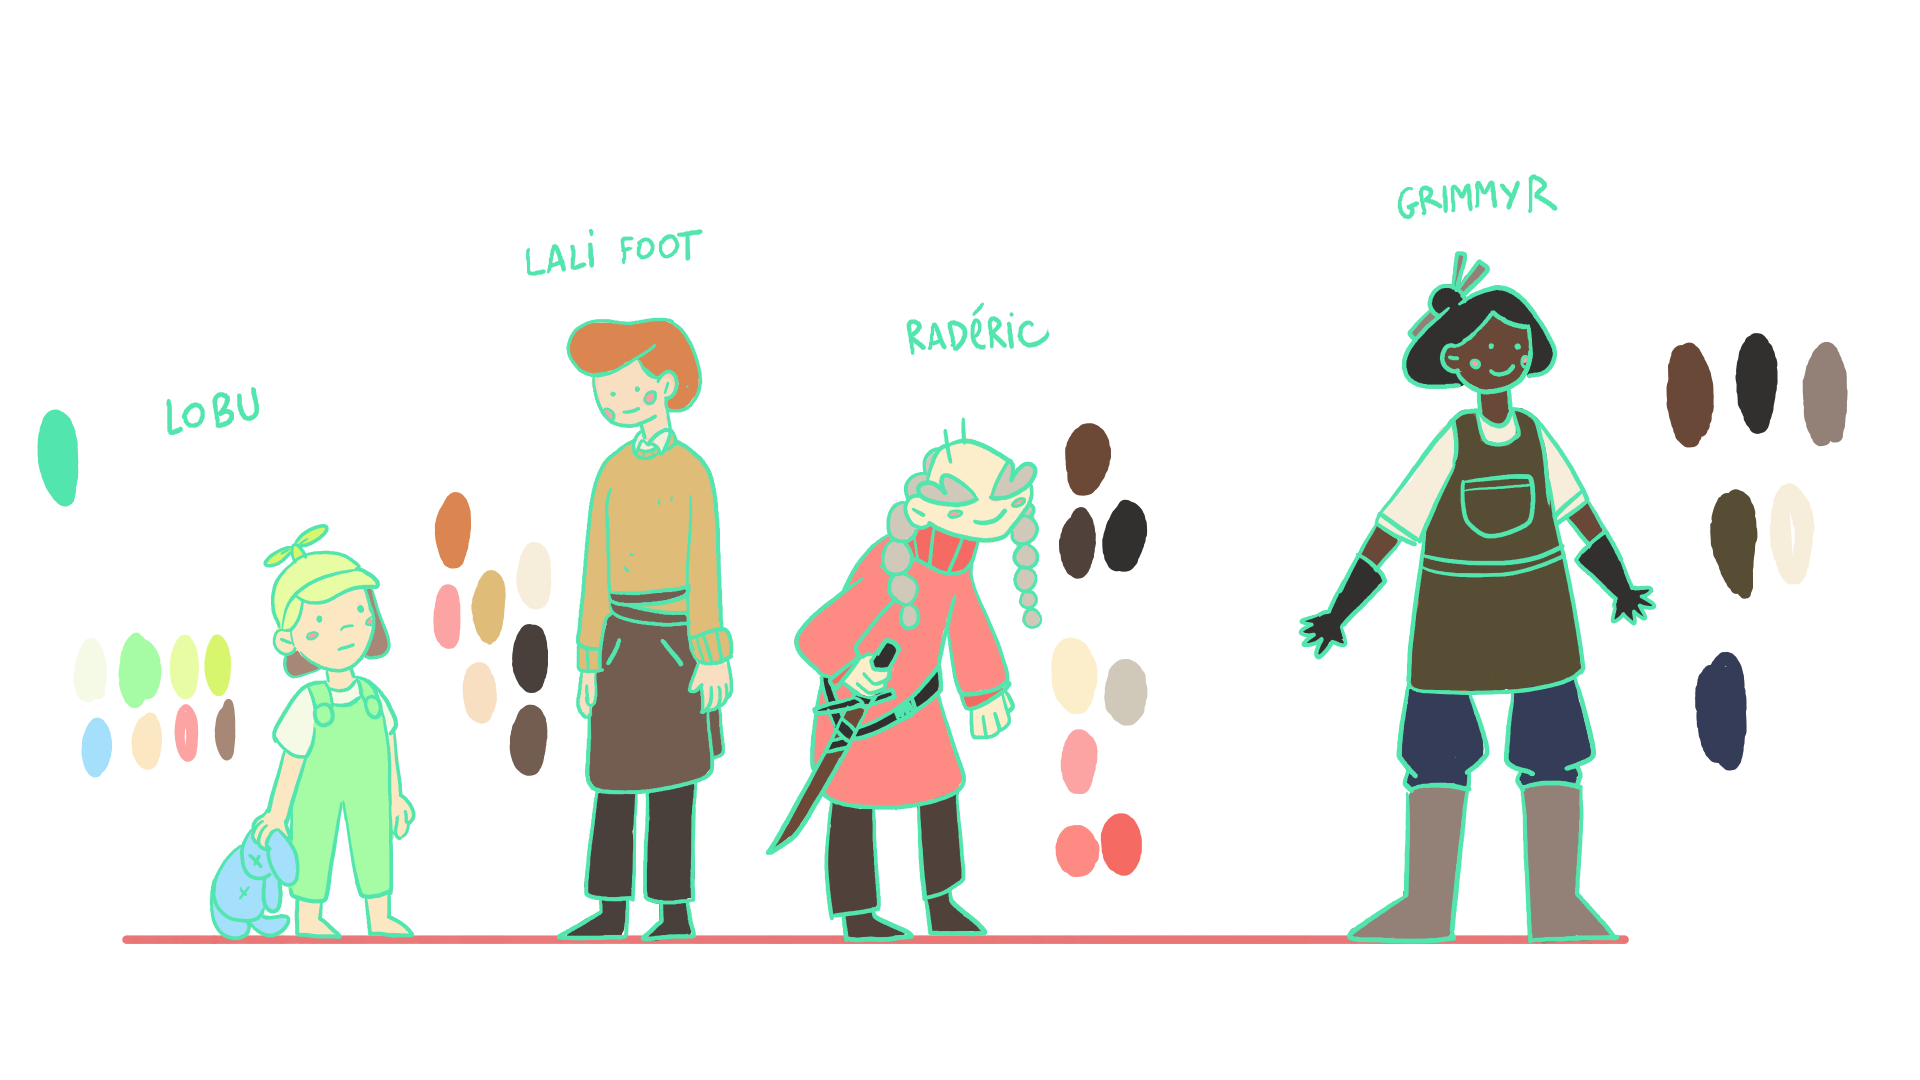 LOBU
LALi FOOT
RADÉRiC
GRIMMYR